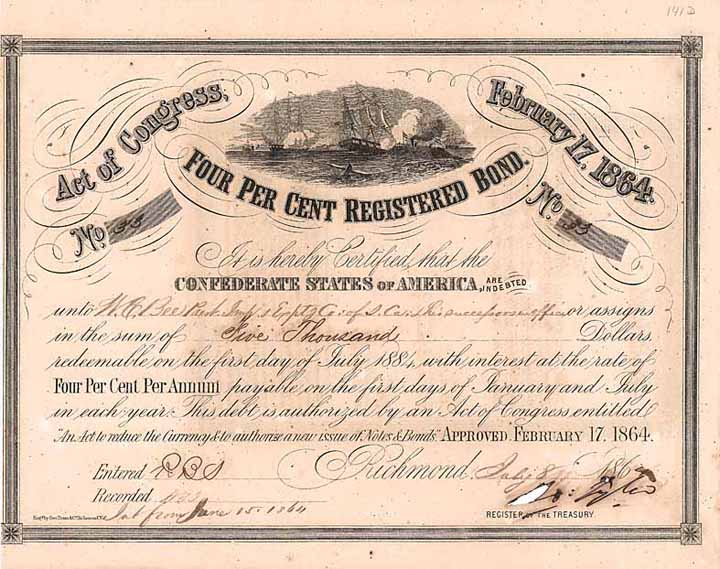 1412
Act of Congress,
February 17, 1864.
FOUR PER CENT REGISTERED BOND.
No. 33
No. 33
It is hereby Certified, that the
CONFEDERATE STATES OF AMERICA, ARE INDEBTED
unto W. C. Bee Prest. Imp'g & Exp'tg Co: of S. Car: & his successors in office or assigns
in the sum of Five Thousand Dollars
redeemable on the first day of July 1884, with interest at the rate of
Four Per Cent Per Annum payable on the first days of January and July
in each year. This debt is authorized by an Act of Congress entitled
"An Act to reduce the Currency & to authorize a new issue of Notes & Bonds," APPROVED FEBRUARY 17, 1864.
Entered RBS Richmond, July 186
Recorded
Int from June 15. 1864
REGISTER OF THE TREASURY.